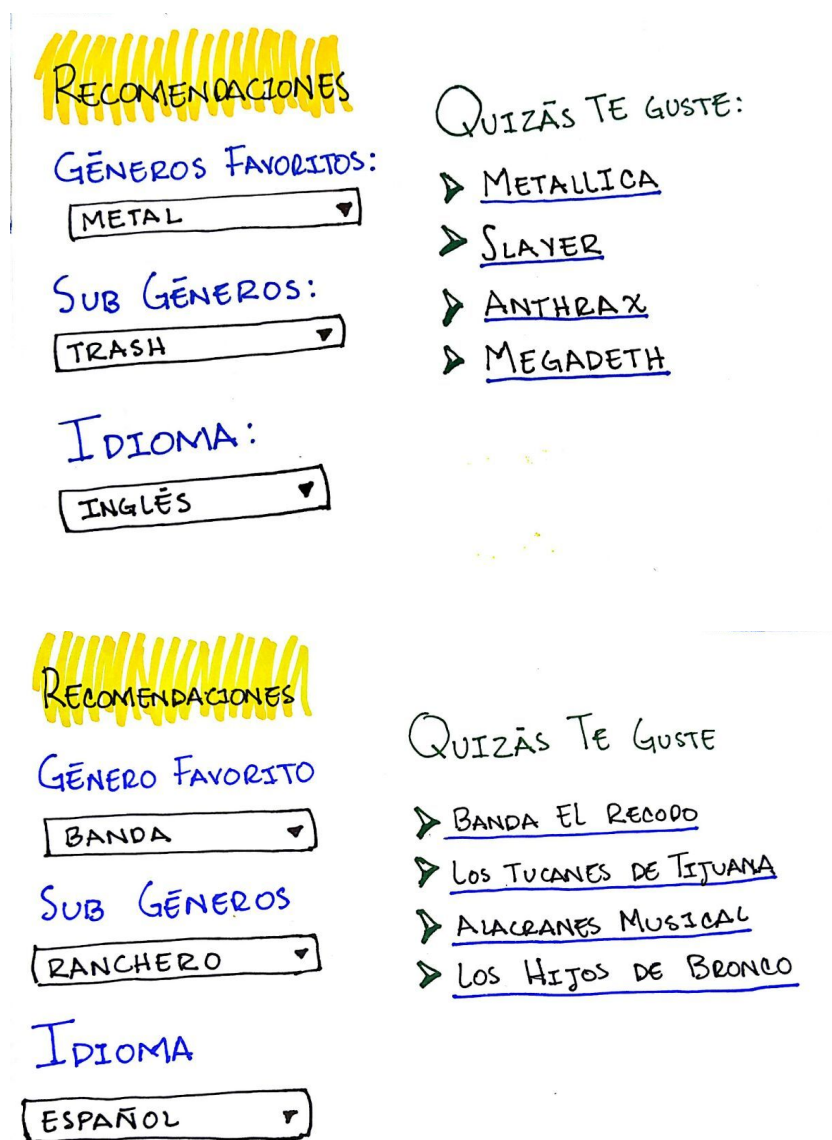 RECOMENDACIONES
GÉNEROS FAVORITOS:
METAL
SUB GÉNEROS:
TRASH
IDIOMA:
INGLÉS
QUIZÁS TE GUSTE:
METALLICA
SLAYER
ANTHRAX
MEGADETH
RECOMENDACIONES
GÉNERO FAVORITO
BANDA
SUB GÉNEROS
RANCHERO
IDIOMA
ESPAÑOL
QUIZÁS TE GUSTE
BANDA EL RECODO
LOS TUCANES DE TIJUANA
ALACRANES MUSICAL
LOS HIJOS DE BRONCO